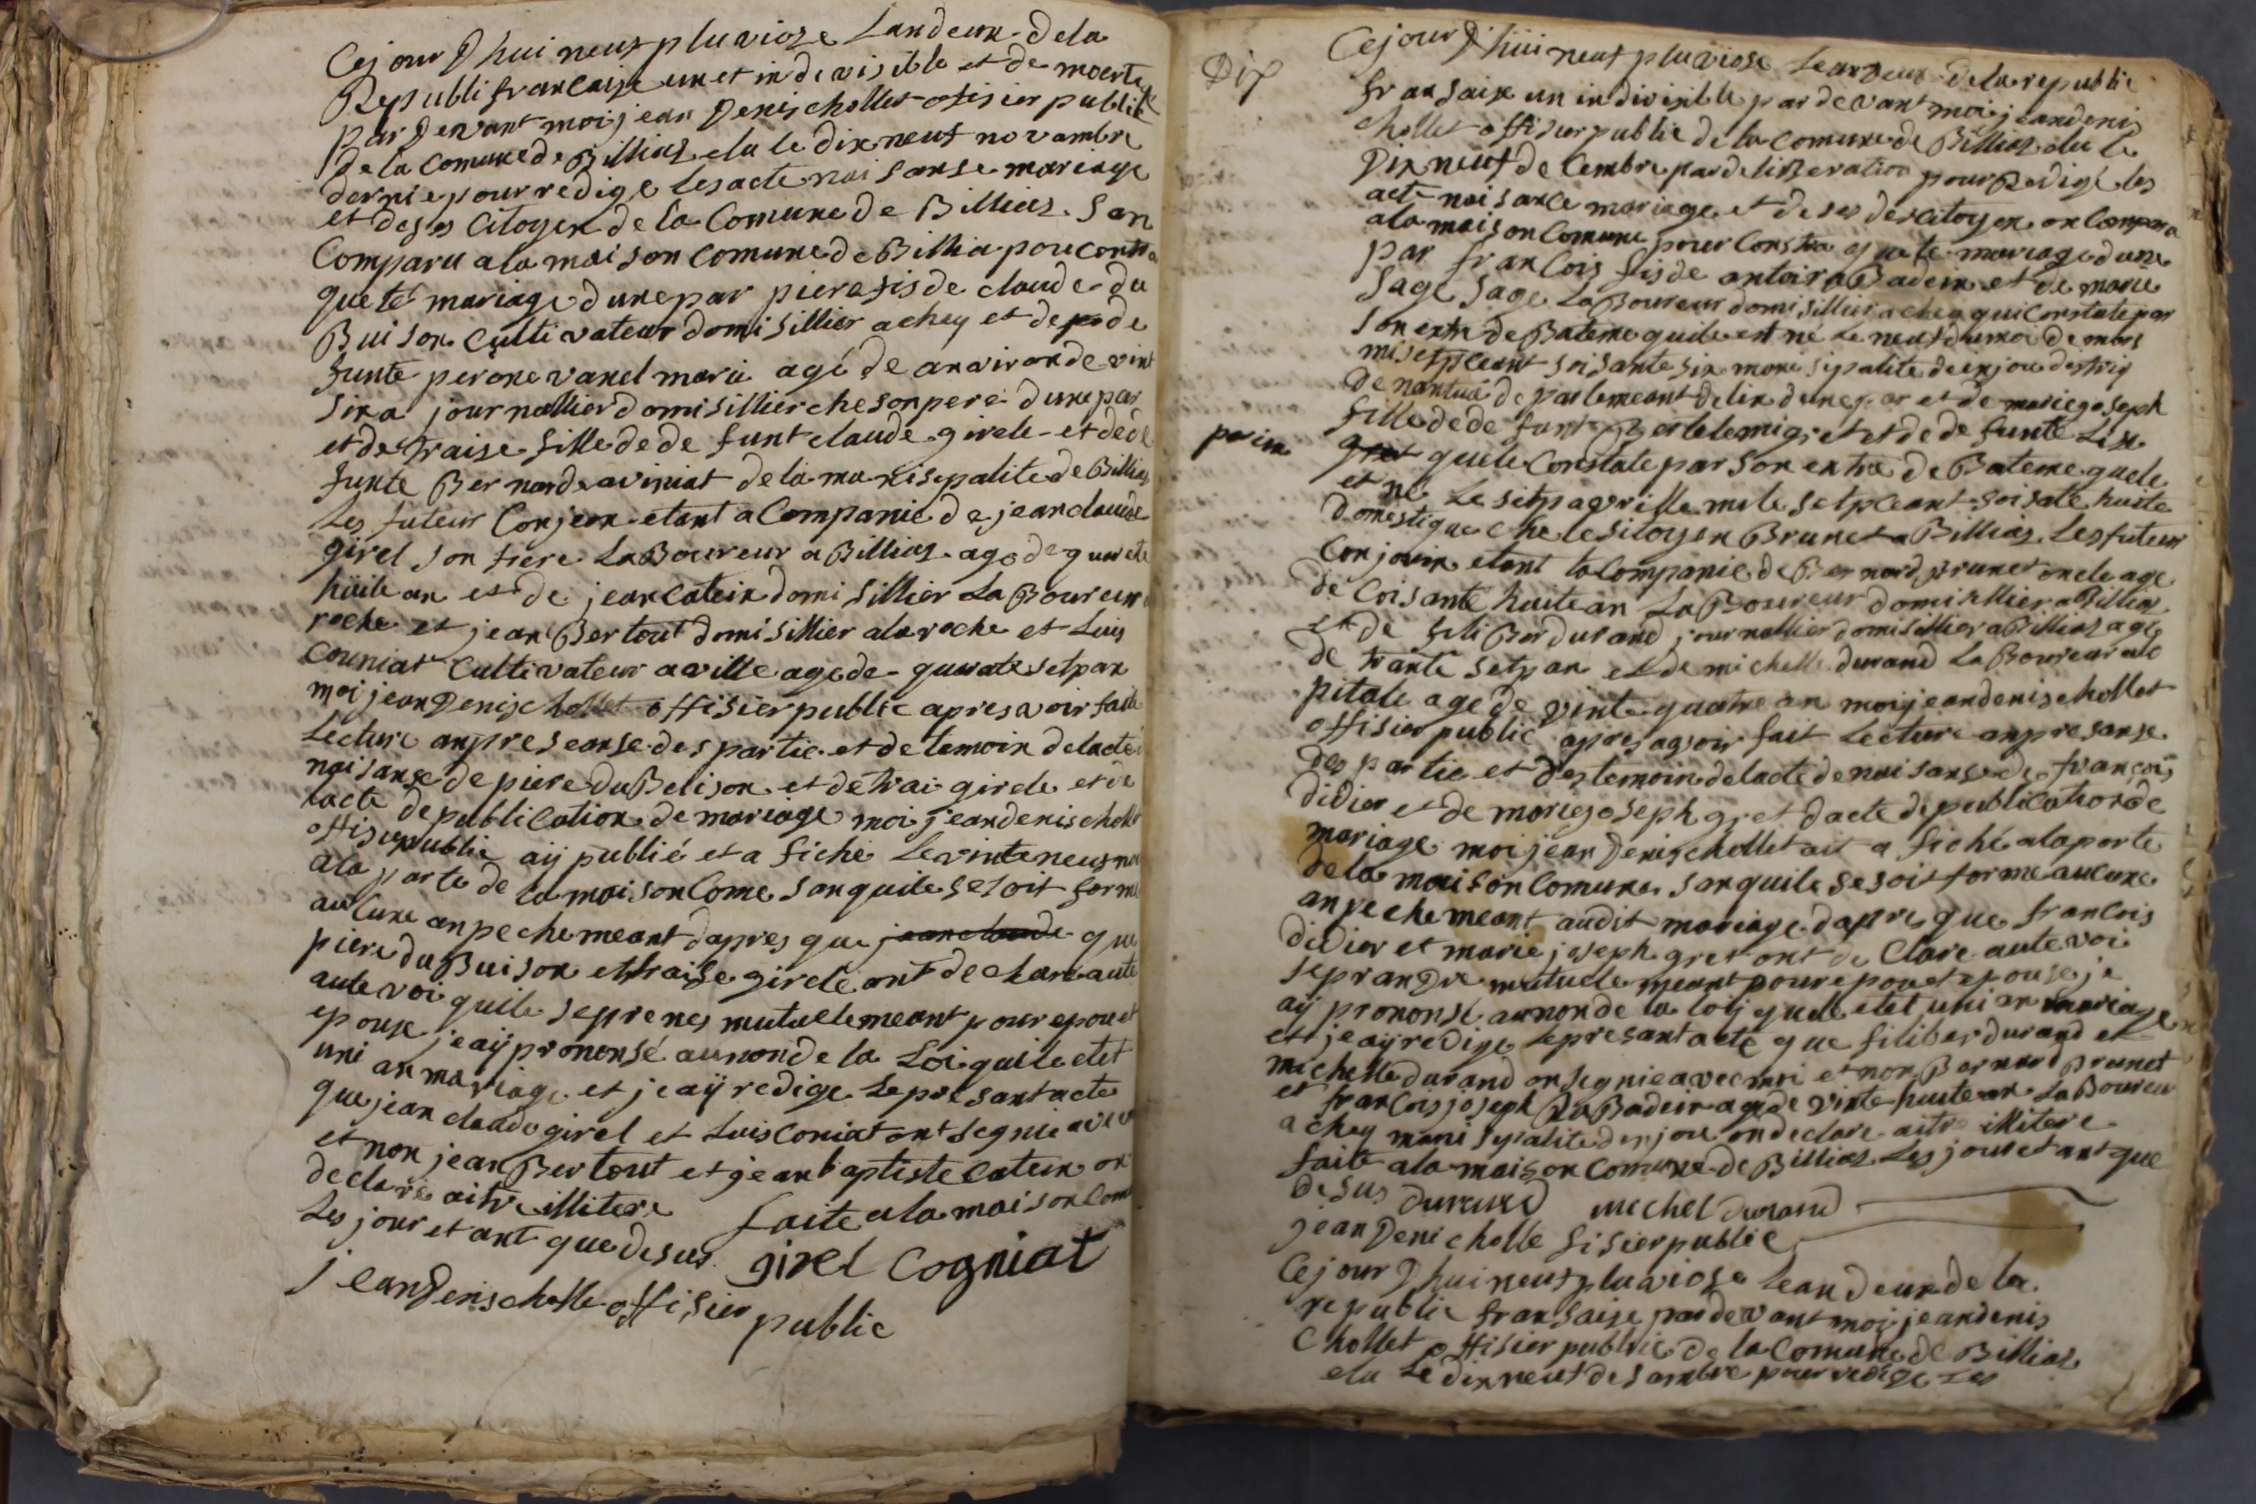 Cejour Dhui neuf pluvioze Landeux dela
Republi francaise un et indevisible et de moerte
par Devant moi jean Denis chollet ofisier public
de la Comune de Billias elu le dix neuf novambre
dernie pour redige les acte nai sanse mareage
et deses Citoyen de la Comune de Billias San
Comparu ala maison Comune de Billia pou contra
quete mariage dune par piere fis de claude du
Buison Cultivateur domisillier a chey et de de
funte perone vanel marie agé de anviron de vint
sixa journallier domisillier che son pere dune par
et de traise fille de de funt claude girele et de de
funte Bernarde aviniat de la munisepalite de Billias
Les futeur Conjeon etant a Companie de jean claude
girel son frere LaBoureur a Billias age de quarete
huite an et de jean Catein domisillier LaBoureur a
roche et jean Bertout domisillier ala roche et Luis
Couniat Cultivateur a ville age de quarate setpan
moi jean Denis chollet offisier public apres avoir faite
Lecture anpreseanse des partie et de temoin delacte
naisanse de piere du Beuison et de trai girele et de
lacte de publication de mariage moi jean denis chollet
offisiepublic aÿ publié et a fiché le vinte neuf ni
ala porte de la maison Come san quile sesoit forme
aucune anpechemeant dapres que jean claude que
piere du Buison et traise girele ont declare aute
aute voi quile seprenes mutuelemeant pour epou et
epouse jeaÿ prononsé aunon de la Loi quile etet
uni an mariage et jeaÿ redige Lepresant acte
que jean claude girel et Luis Coniat ont segnie avec
et non jean Bertout et jean baptiste Catein on
declare aitre illitere faite ala maison Com
Les jour et ant que desus. girel Cogniat
jean Denis cholle offisier
public
Dix
Cejour Dhui neuf pluviose Lean deux dela republic
fransaise un indivisible par devant moi jean denis
chollet offisier public de la Comune de Billias elu le
Dix neuf de Cembre par deliBeration pour Redigé les
acte naisance mariage et deses des citoyen on Compara
ala maison Comune pour Constra quete mariage dune
par francois fis de antoine Badein et de marie
Sage Sage LaBoureur domisillier a chey qui Constate par
Son extra de Bateme quile est né Le neuf dumoi de mars
misetpceant soisante six munisipalite deinjou destrig
de nantua de parlemeant delin dune par et de marie joseph
fille de de funt Bertelemi gret et de de funte Lise
perin
gret quele Constate par son extra de Bateme quele
et né Le sitpavrille mile setpceant soisate huite
Domestique che le sitoyen Brunet a Billias Les futeur
Conjouin etant la Companie de Bernard prunet oncle age
de Coisante huite an LaBoureur domisillier a Billias
et de feliBer durand journallier domisillier a Billias age
de trante setpan et de michelle durand LaBoureur alo
pitale age de vinte quatre an moi jean denis chollet
offisier public apres avoir fait Lecture anpresanse
des partie et des temoin delacte de naisanse de françois
didier et de marie joseph gret dacte de publication de
mariage moi jean Denis chollet ait a fiché ala porte
dela maison Comune san quile sesoit forme aucune
anpechemeant audit mariage dapre que francois
didier et marie joseph gret ont de Clare aute voi
seprandre mutuelemeant pour epou et epouse je
aÿ prononse aunon de la loij quile etet uni an mariage
et jeaÿ redige Lepresant acte que filiber durand et
michelle durand on segnie avec moi et non Bernard prunet
et francois joseph Badein age de vinte huite an LaBoureu
a chey munisipalite denjou on declare aitre illitere
faite ala maison Comune de Billias Les jour et ant que
desus durand michel durand
jean Deni cholle fisier public
Cejour Dhui neuf pluviose Lean deux de la
republic fransaise par devant moi jean denis
Chollet offisier public de la Comune de Billias
elu Le dix neuf desambre pour redige Les